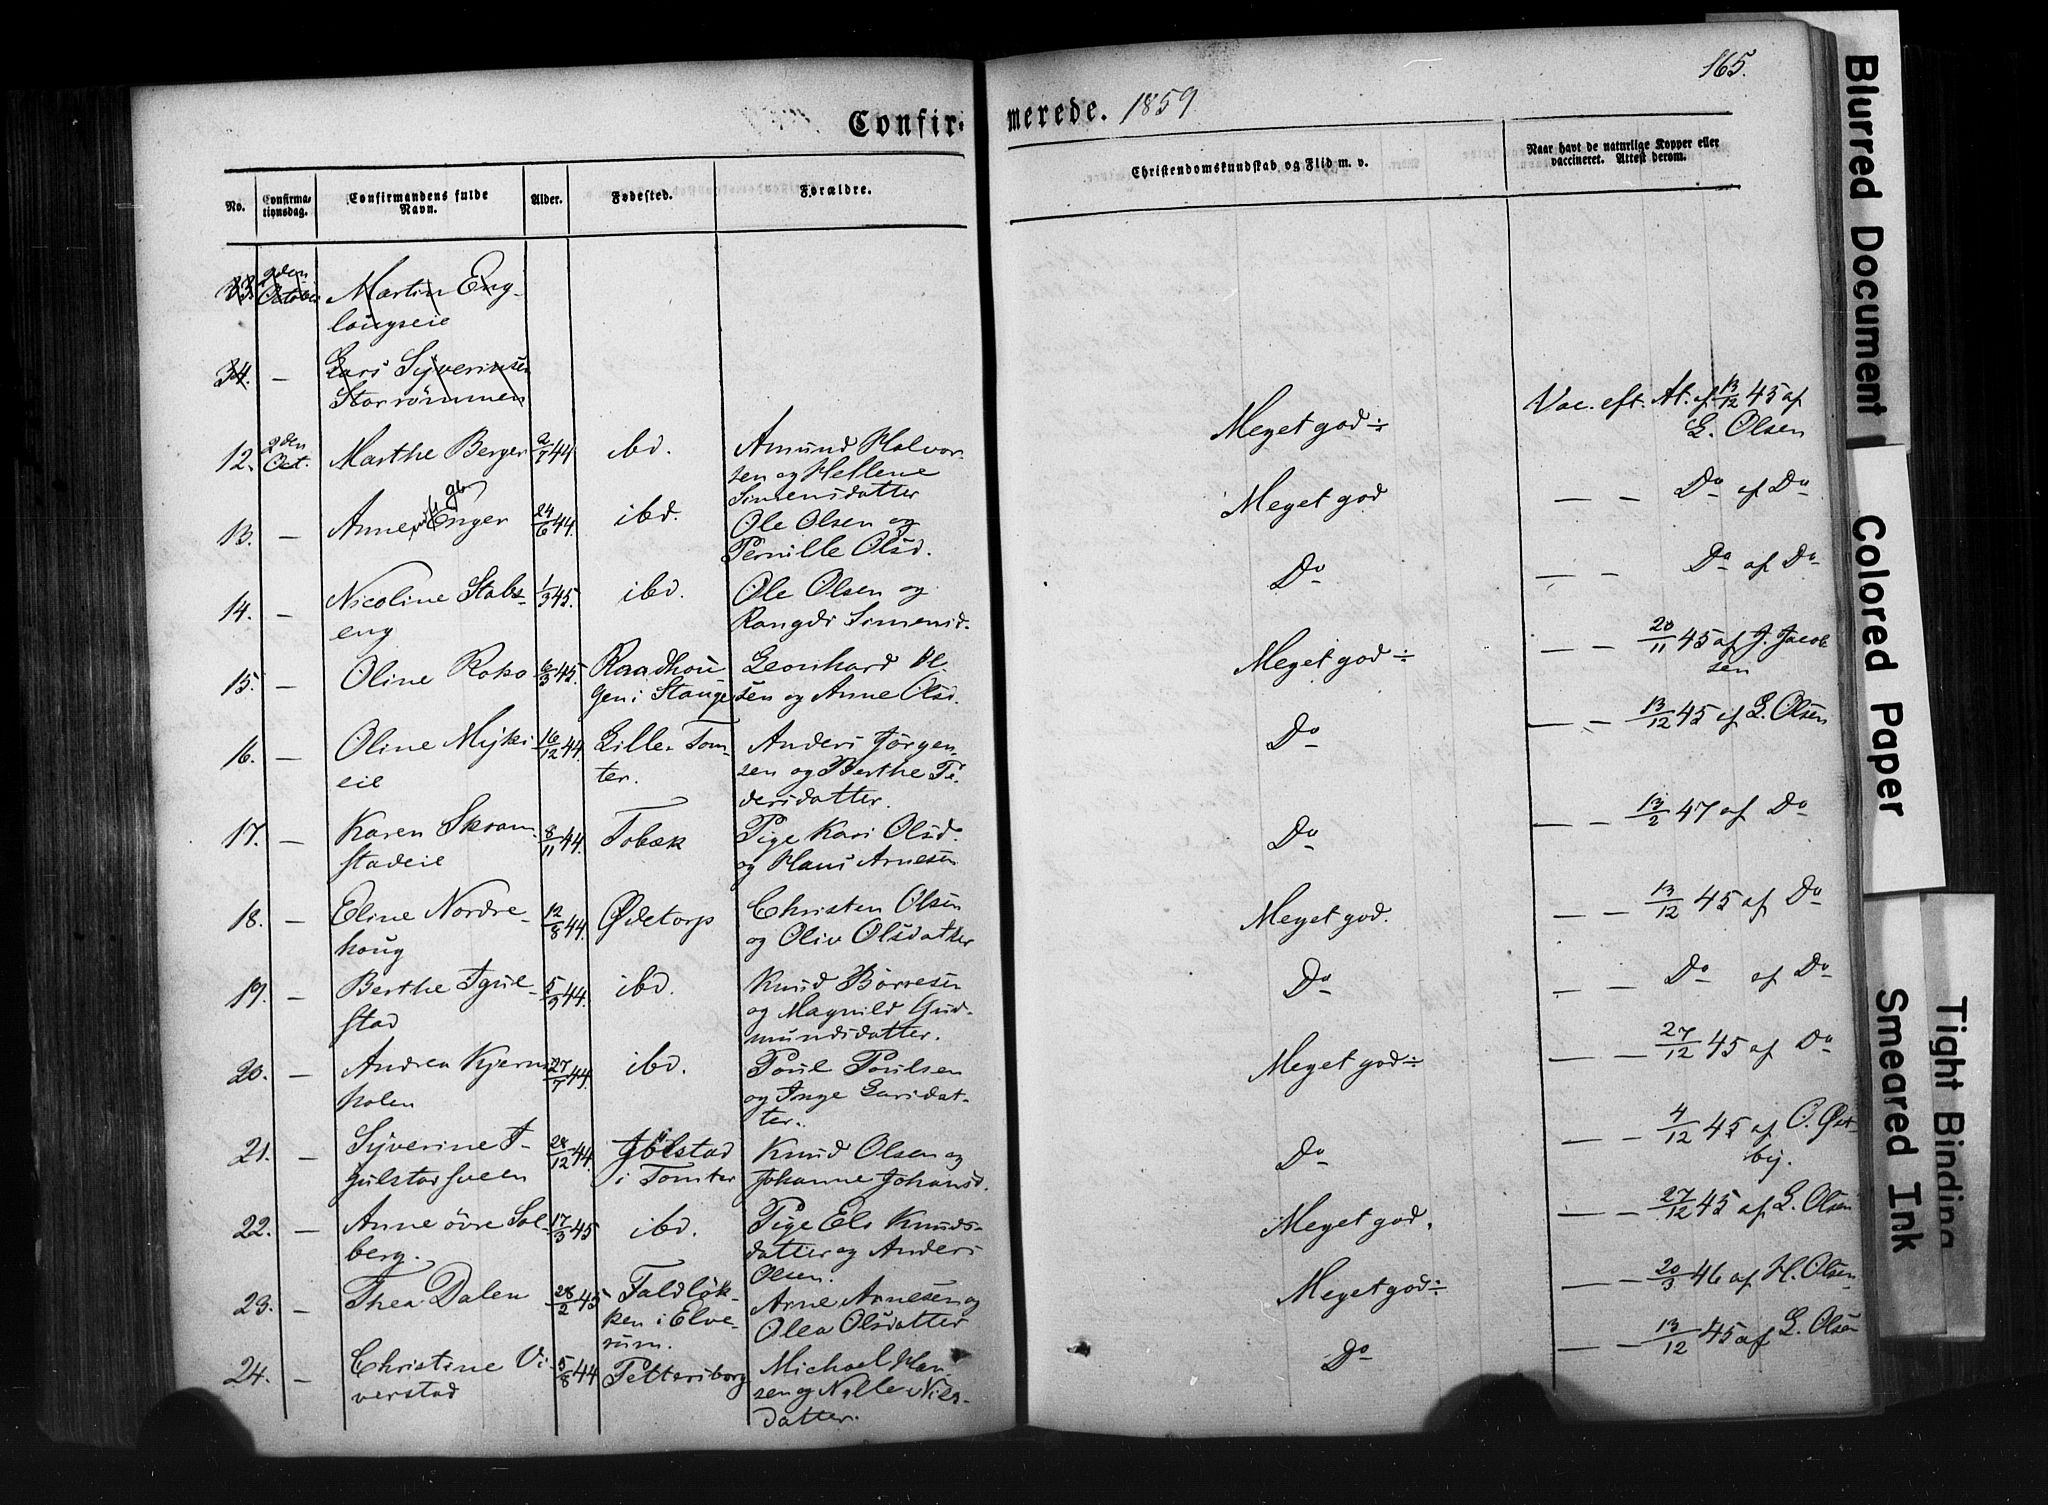 165.
Confirmerede. 1859
No.
Confirmationsdag.
Confirmandens fulde Navn.
Alder.
Fødested.
Forældre.
Christendomskundskab og Flid m. v.
Naar havt de naturlige Kopper eller
vaccineret. Attest derom.
33. October Martin Eng-
laugseie
34. — Lars Syverinsen
Storrömmen
12. 2den Oct. Marthe Berger 2/7 44 ibd. Amund Halvor-
sen og Hellene
Simensdatter
Meget god ÷ Vac. eft. At. af 13/12 45 af
L. Olsen
13. — Anne Enger 24/6 44. ibd. Ole Olsen og
Pernille Olsd.
Meget god — — Do af Do
14. — Nicoline Stabs-
eng 1/3 45. ibd. Ole Olsen og
Rangdi Simensd.
Do — — Do af Do
15. — Oline Roko 6/3 45. Raadhou
gen i Stange Leonhard Ol
sen og Anne Olsd.
Meget god ÷ — — 20/11 45 af J. Jacob
sen
16. — Oline Myki
eie 16/12 44. Lille Tom-
ter. Anders Jörgen-
sen og Berthe Pe
dersdatter.
Do — — 13/12 45 af L. Olsen
17. — Karen Skram-
stadeie 8/11 44. Tobæk Pige Kari Olsd.
og Hans Arnesen
Do — — 13/2 47 af Do
18. — Eline Nordre-
houg 12/8 44. Ødetorp Christen Olsen
og Oliv Olsdatter
Meget god. — — 13/12 45 af Do
19. — Berthe Igul-
stad 5/9 44. ibd. Knud Börresen
og Magnild Gud-
mundsdatter.
Do — — Do af Do
20. — Andrea Kjerns
holen 27/7 44. ibd. Poul Poulsen
og Inge Larsdat-
ter.
Meget god ÷ — — 27/12 45 af Do
21. — Syverine I-
gulstadsveen 28/12 44. Igulstad
i Tomter Knud Olsen og
Johanne Johansd.
Do — — 4/12 45 af O. Øst-
by.
22. — Anne övre Sol-
berg. 17/3 45 ibd. Pige Els Knuds-
datter og Anders
Olsen.
Meget god. — — 27/12 45 af L. Olsen
23. — Thea Dalen 28/2 45 Faldlök-
ken i Elve-
rum. Arne Arnesen og
Olea Olsdatter
Meget god ÷ — — 20/3 46 af H. Olsen
24. — Christine Vi
verstad 5/8 44 Pettersborg Michael Han
sen og Nille Nils-
datter.
Do — — 13/12 45 af L. Olsen
Blurred Document
Colored Paper
Tight Binding
Smeared Ink